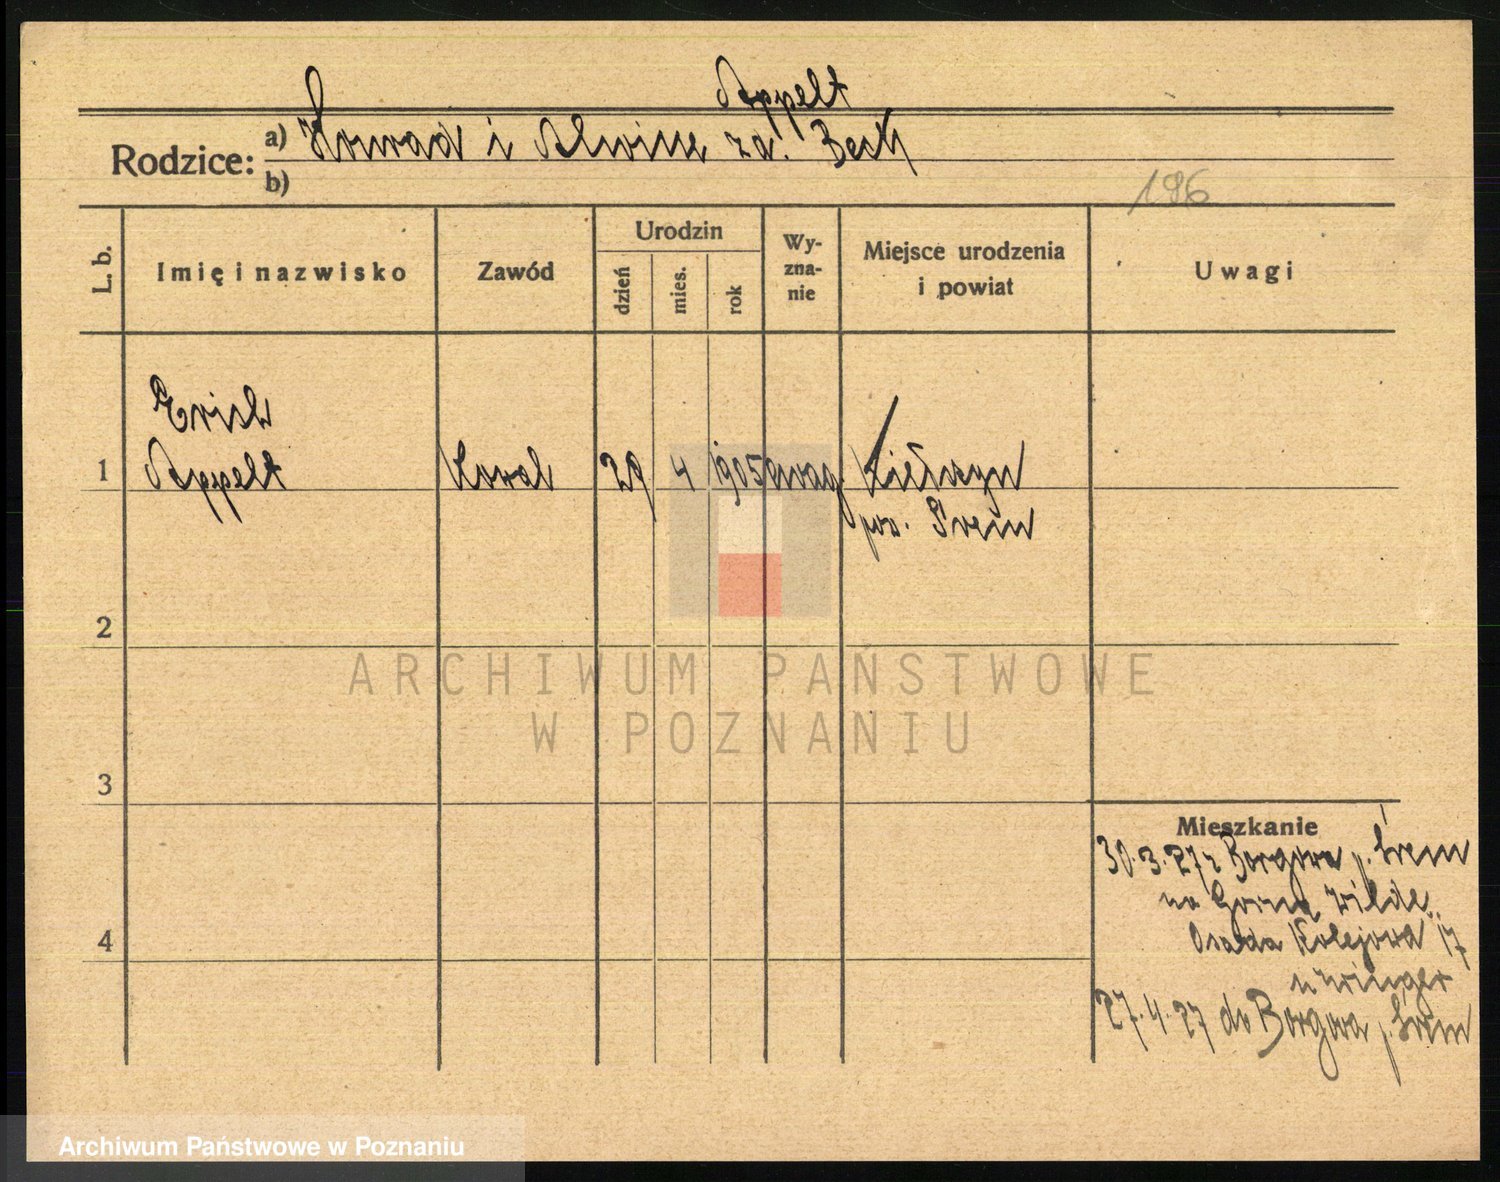 Appelt
Rodzice: a) Konrad i Alwine za. Beck
b)
186
L. b.
Imię i nazwisko
Zawód
Urodzin
dzień
mies.
rok
Wy-
zna-
nie
Miejsce urodzenia
i powiat
Uwagi
Erich
1 Appelt Kowal 29 4 1905 ewag. Kiełczyn
pow. Śrem
2
3
4
Mieszkanie
30.3.27 z Borgowa p. Śrem
na Górna Wilde
Osada Kolejowa 17
27.4.27 do Borgowa p. Śrem
ARCHIWUM PAŃSTWOWE
W POZNANIU
Archiwum Państwowe w Poznaniu